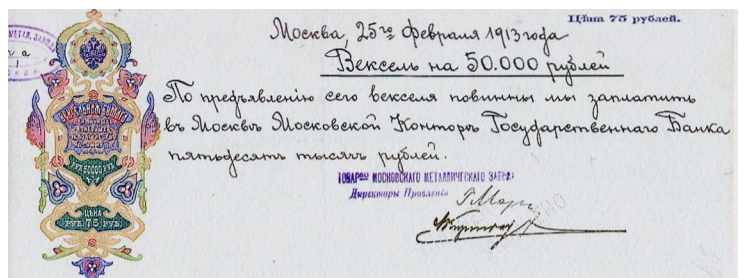 Цѣна 75 рублей.
Москва, 25го февраля 1913 года
Вексель на 50.000 рублей
По предъявленію сего векселя повинны мы заплатить
въ Москвѣ Московской Конторѣ Государственнаго Банка
пятьдесятъ тысячъ рублей.
ТОВАРво МОСКОВСКАГО МЕТАЛЛИЧЕСКАГО ЗАВОДА
Директоры Правленія
РУБ 50000 РУБ
ЦѢНА
РУБ. 75 РУБ.